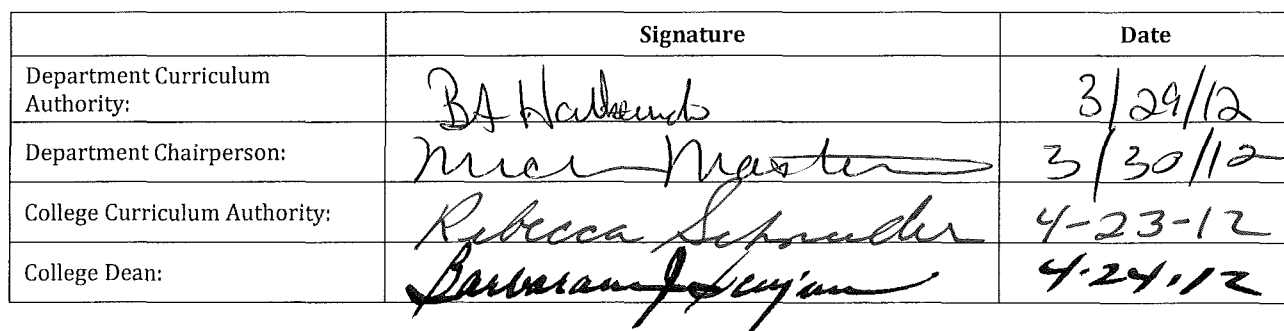 Signature Date
Department Curriculum
Authority: BA 3/29/12
Department Chairperson: 3/30/12
College Curriculum Authority: Rebecca Schneider 4-23-12
College Dean: 4.24.12